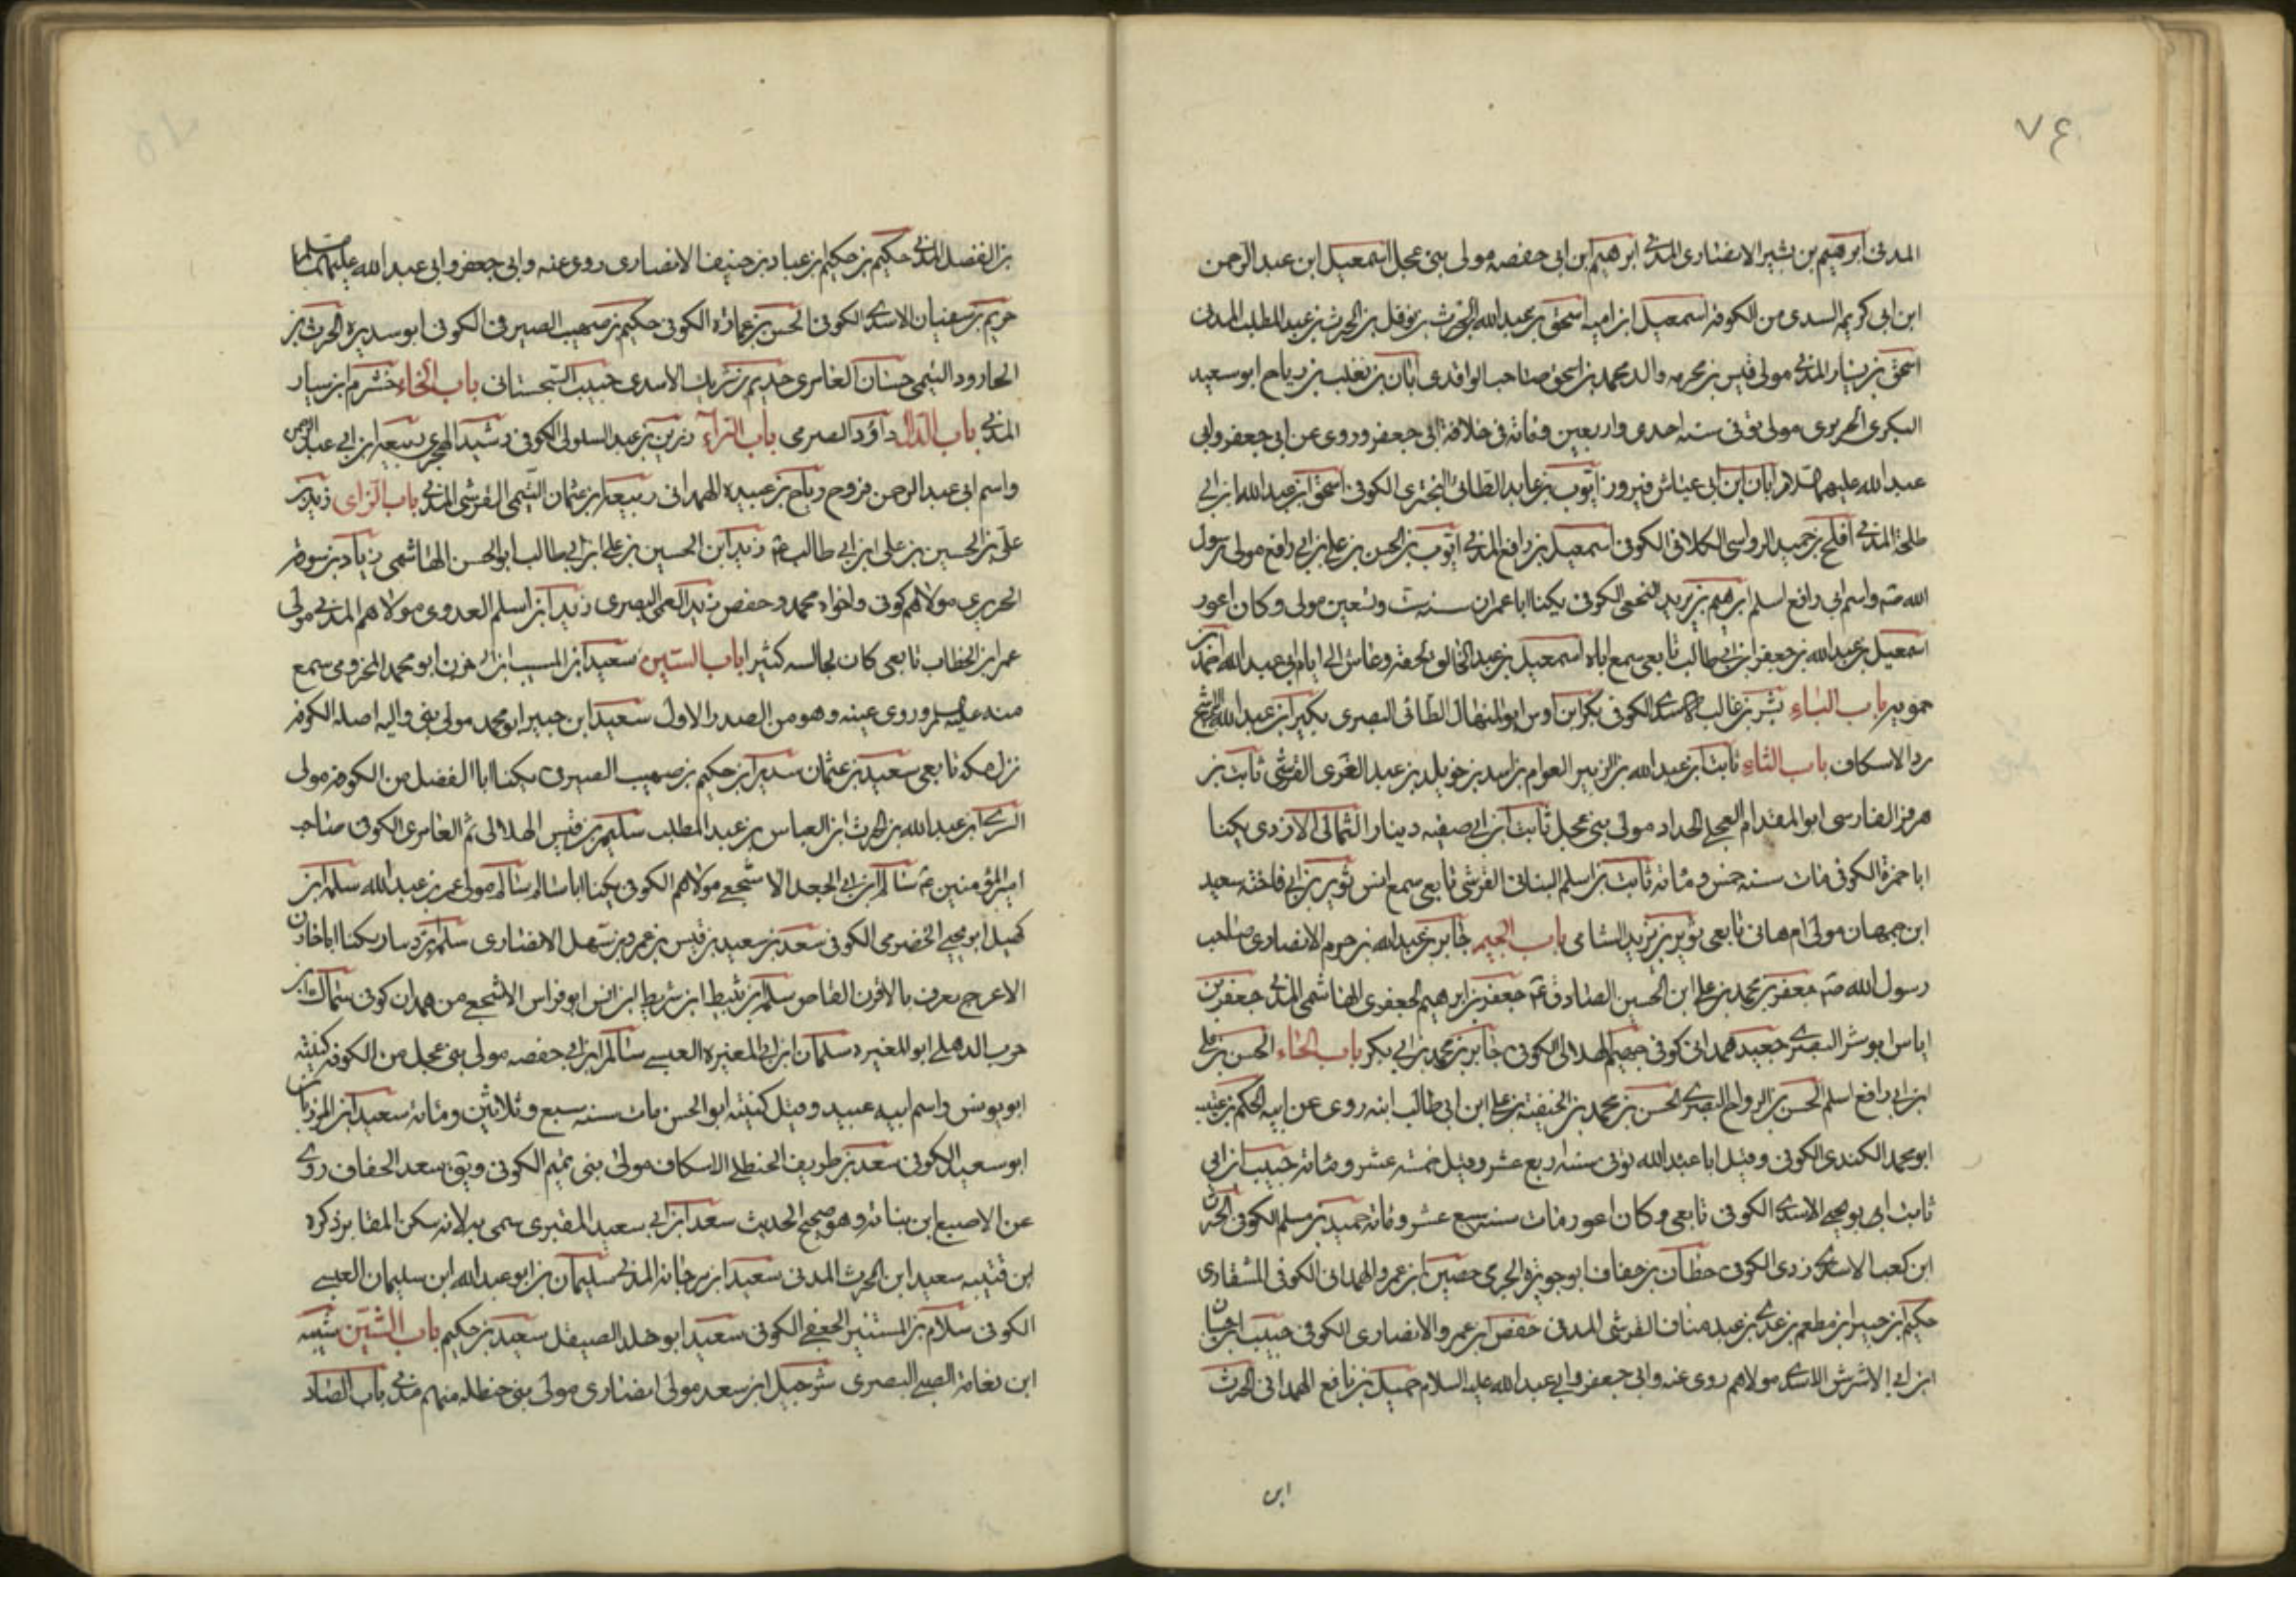 ٧٤
المدنى ابرهيم بن بشير الانصارى المدنى ابرهيم ابن ابى حفصه مولى بنى عجل اسمعيل ابن عبد الرحمن
ابن ابى كريمه السدى من الكوفه اسمعيل ابن اميه اسحق بن عبد الله بن الحرث بن نوفل بن الحرث بن عبد المطلب المدنى
اسحق بن يسار المدنى مولى قيس بن مخرمه والد محمد بن اسحق صاحب الواقدى ابان بن تغلب بن رباح ابو سعيد
البكرى الجريرى مولى توفى سنه احدى واربعين ومائه فى خلافة ابى جعفر وروى عن ابى جعفر وابى
عبد الله عليهما السلام ابان ابن ابى عياش فيروز ايوب بن عابد الطائى البخترى الكوفى اسحق ابن عبد الله ابن ابى
طلحة المدنى افلح بن حميد الرواسى الكلابى الكوفى اسمعيل بن رافع المدنى ايوب بن الحسن بن على بن ابى رافع مولى رسول
الله صم واسم ابى رافع اسلم ابرهيم بن يزيد النخعى الكوفى يكنا ابا عمران سنة ست وتسعين مولى وكان اعور
اسمعيل بن عبد الله بن جعفر ابن ابى طالب تابعى سمع اباه اسمعيل بن عبد الخالق لحقه وعاش الى ايام ابى عبد الله احمد بن
حمويه باب الباء بشر بن غالب الاسدى الكوفى بكر ابن اوس ابو المنهال الطائى البصرى بكير ابن عبد الله الاشج
برد الاسكاف باب الثاء ثابت ابن عبد الله بن الزبير العوام بن اسد بن خويلد بن عبد العزى القرشى ثابت بن
هرمز الفارسى ابو المقدام العجلى الحداد مولى بنى عجل ثابت ابن ابى صفيه دينار الثمالى الازدى يكنا
ابا حمزة الكوفى مات سنه خمس ومائه ثابت بن اسلم البنانى القرشى تابعى سمع انس ثوير بن ابى فاخته سعيد
ابن جمهان مولى ام هانى تابعى ثوير بن يزيد الشامى باب الجيم جابر بن عبد الله بن حرم الانصارى صاحب
رسول الله صم جعفر بن محمد بن على ابن الحسين الصادق عم جعفر بن ابرهيم الجعفرى الهاشمى المدنى جعفر بن
اياس ابو بشر البصرى جعيد همدانى كوفى الهلالى الكوفى جابر بن محمد بن ابى بكر باب الحاء الحسن بن على
ابن ابى رافع اسلم الحسن بن الرواح البصرى الحسن بن محمد بن الحنيفة بن على ابن ابى طالب ابنه روى عن ابيه الحكم بن عتيبه
ابو محمد الكندى الكوفى وقيل ابا عبد الله توفى سنه اربع عشر وقيل خمسة عشر ومائه حبيب ابن ابى
ثابت ابو يحيى الاسدى الكوفى تابعى وكان اعور مات سنه تسع عشر ومائه حميد بن مسلم الكوفى
ابن كعب الاسدى الكوفى حطان بن خفاف ابو جويرة الجرمى حصين ابن عمرو الهمدانى الكوفى المشفارى
حكيم بن جبير ابن مطعم بن عدى بن عبد مناف القرشى المدنى حفص بن عمرو الانصارى الكوفى حبيب ابن حسان
ابن ابى الاشرش الاسدى مولاهم روى عنه وابى جعفر وابى عبد الله عليه السلام حميل بن نافع الهمدانى الحرث
ابن
بن الفضل المدنى حكيم بن حكيم ابن عباد بن حنيف الانصارى روى عنه وابى جعفر وابى عبد الله عليهما السلام
حريم بن سفيان الاسدى الكوفى الحسن بن عمارة الكوفى حكيم بن صهيب الصيرفى الكوفى ابو سديره الحرث بن
الجارود التيمى حسان العامرى حديم بن شريك الاسدى حبيب السجستانى باب الخاء خشرم ابن سيار
المدنى باب الدال داود الصرمى باب الراء رزين بن عبد السلولى الكوفى رشيد الهجرى ربيعه ابن ابى عبد الرحمن
واسم ابى عبد الرحمن فروخ رباح بن عبيده الهمدانى ربيعه ابن عثمان التيمى القرشى المدنى باب الزاى زيد بن
على بن الحسين بن على ابن ابى طالب عم زيد ابن الحسين بن على ابن ابى طالب ابو الحسن الهاشمى زياد بن سوقه
الجريرى مولاهم كوفى واخواه محمد وحفص زيد العمى البصرى زيد ابن اسلم العدوى مولاهم المدنى مولى
عمر ابن الخطاب تابعى كان يجالسه كثيرا باب السين سعيد ابن المسيب ابن ابى حزن ابو محمد المخزومى سمع
منه عليه السلم وروى عنه وهو من الصدر الاول سعيد ابن جبير ابو محمد مولى بنى والبه اصله الكوفه
نزل مكه تابعى سعيد بن عثمان سدير ابن حكيم بن صهيب الصيرفى يكنا ابا الفضل من الكوفه مولى
السرى ابن عبد الله بن الحرث ابن العباس بن عبد المطلب سليم بن قيس الهلالى ثم العامرى الكوفى صاحب
امير المؤمنين عم سالم ابن ابى الجعد الاشجعى مولاهم الكوفى يكنا ابا سالم سالم مولى عمر بن عبد الله سلمه ابن
كهيل ابو يحيى الحضرمى الكوفى سعد بن سعيد بن قيس بن عمرو بن سهل الانصارى سلمه بن دينار يكنا ابا خازن
الاعرج يعرف بالافزن القاص سلمه بن نبيط ابن شريط ابن انس ابو فراس الاشجعى من همدان كوفى سماك ابن
حرب الذهلى ابو المغيره سلمان ابن ابى المغيره العبسى سالم ابن ابى حفصه مولى بنى عجل من الكوفه كنيته
ابو يونس واسم ابيه عبيد وقيل كنيته ابو الحسن مات سنه سبع وثلاثين ومائه سعيد ابن المرزبان
ابو سعيد الكوفى سعد بن طريف الحنظلى الاسكاف مولى بنى تميم الكوفى ويق سعد الخفاف روى
عن الاصبغ ابن نباته وهو صحيح الحديث سعد ابن ابى سعيد المقبرى سمى به لانه سكن المقابر ذكره
ابن قتيبه سعيد ابن الحرث المدنى سعيد ابن مرجانه المدنى سليمان بن ابو عبد الله ابن سليمان العبسى
الكوفى سلام بن المستنير الجعفى الكوفى سعيد ابو خلد الصيقل سعيد بن حكيم باب الشين شيبه
ابن نعامه الضبى البصرى شرحبيل ابن سعد مولى انصارى مولى بنى حنظله منهم مدنى باب الصاد